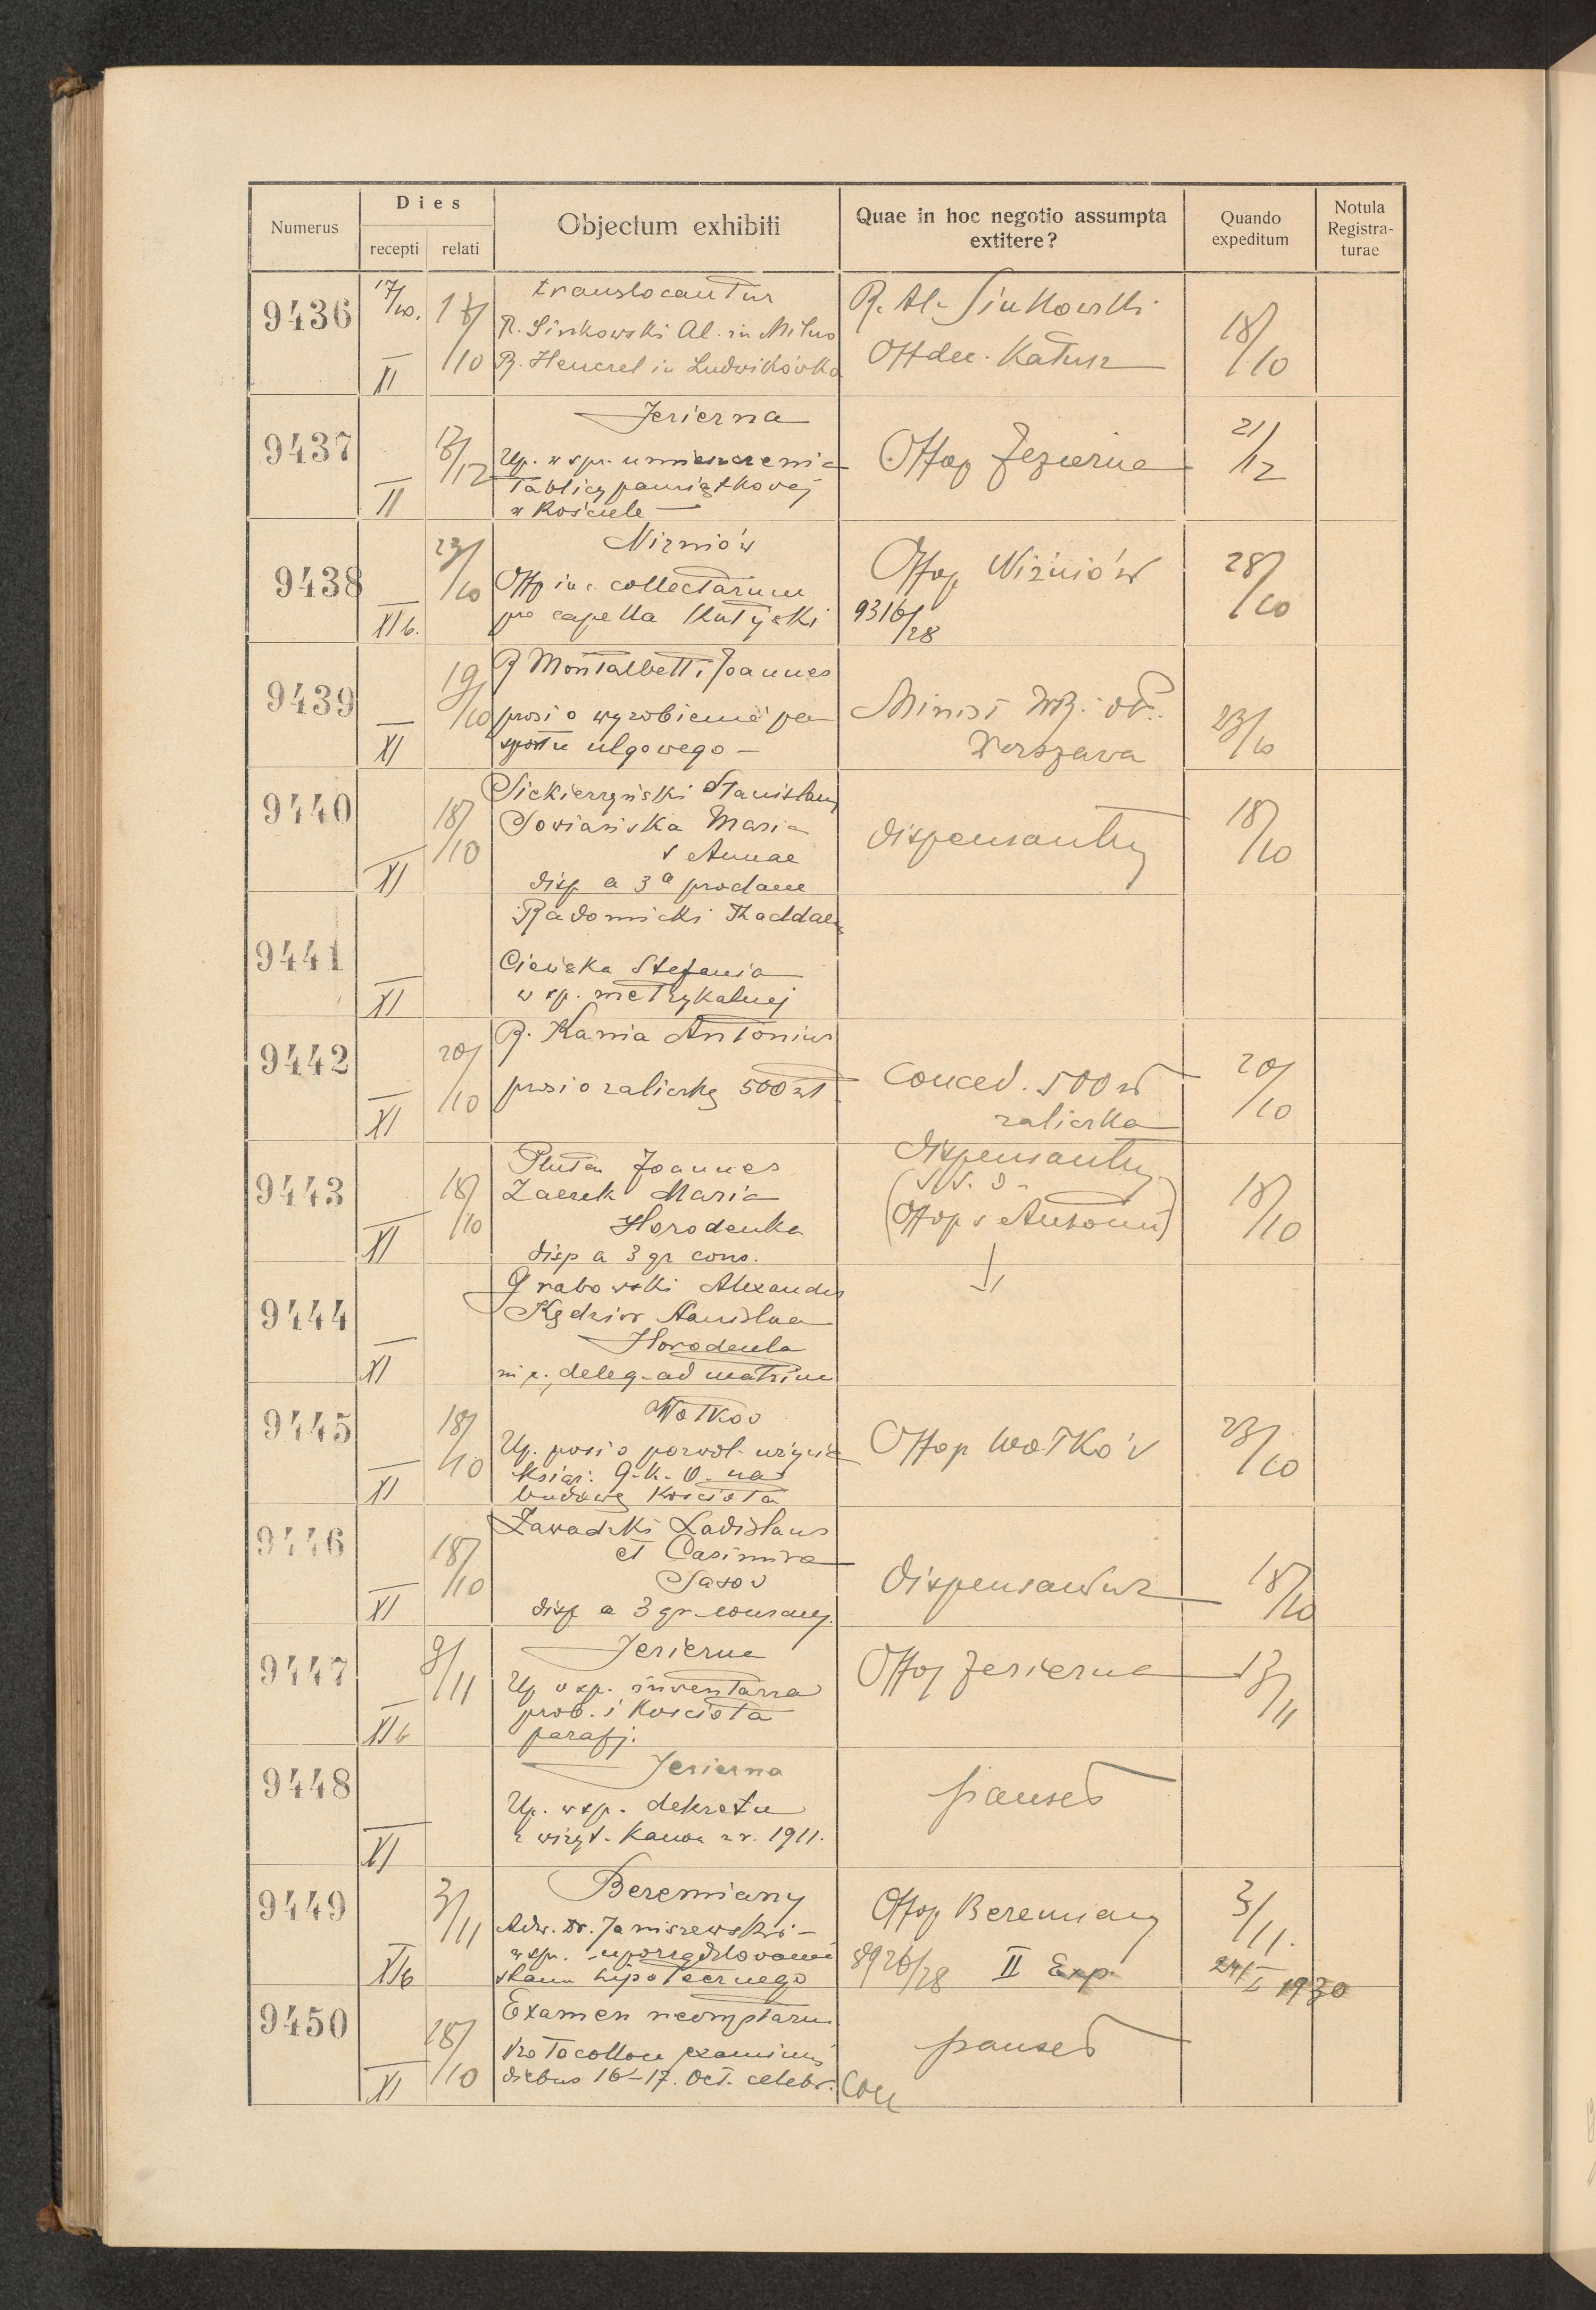 Numerus
Dies
recepti
relati
Objectum exhibiti
Quae in hoc negotio assumpta
extitere?
Quando
expeditum
Notula
Registra-
turae
9436
17/10.
18/10
XI
translocantur
R. Sinkowski Al. in Milno
R. Henczel in Ludwikówka
R. Al. Sinkowski
Offdec. Kałusz
18/10
9437
II
Jezierna
Up. w spr. umieszczenia
Tablicy pamiątkowej
w Kościele
Offop Jezierna
21/12
9438
23/10
XIb.
Nizniów
Offp in c. collectarum
pro capella
Offop Niżniów
9316/28
28/10
9439
19/10
XI
R Montalbetti Joannes
prosi o wyrobienie pa
szportu ulgowego
Minist WR. i OP.
Warszawa
23/10
9440
18/10
XI
Siekierzyński Stanislaus
Sowiańska Maria
s Annae
disp a 3a proclam
dispensantur
18/10
9441
XI
Radomicki Thaddaeus
Cieńska Stefania
w sp. metrykalnej
9442
20/10
XI
R. Kania Antonius
prosi o zaliczkę 500 zł
conced. 500 zł
zaliczka
20/10
9443
18/10
XI
Pluta Joannes
Maria
Horodenka
disp a 3 gr cons.
dispensantur
(Offop s Antonii)
18/10
9444
XI
Grabowski Alexander
Kędzior Stanislaa
Horodenka
deleg. ad matrim
9445
18/10
XI
Wołków
Up. prosi o pozwol. użycia
książ. G. K. O. na
budowę Kościoła
Offop Wołków
23/10
9446
18/10
XI
Zawadzki Ladislaus
et Casimira
Sasów
disp a 3 gr consang.
dispensantur
18/10
9447
9/11
XIb
Jezierna
Up w sp. inwentarza
prob. i Kościoła
parafj.
Offop Jezierna
13/11
9448
XI
Jezierna
Up. w sp. dekretu
z wizyt. Kanon z r. 1911.
pauset
9449
3/11
XIb
Beremiany
Adw. Dr. Janiszewski
w spr. uporządkowania
stanu hipotecznego
Offop Beremiany
8926/28 II Exp.
3/11.
24/I 1930
9450
18/10
XI
Examen neomystarum
Protocollon examinis
diebus 16-17. Oct. celebr.
pauset